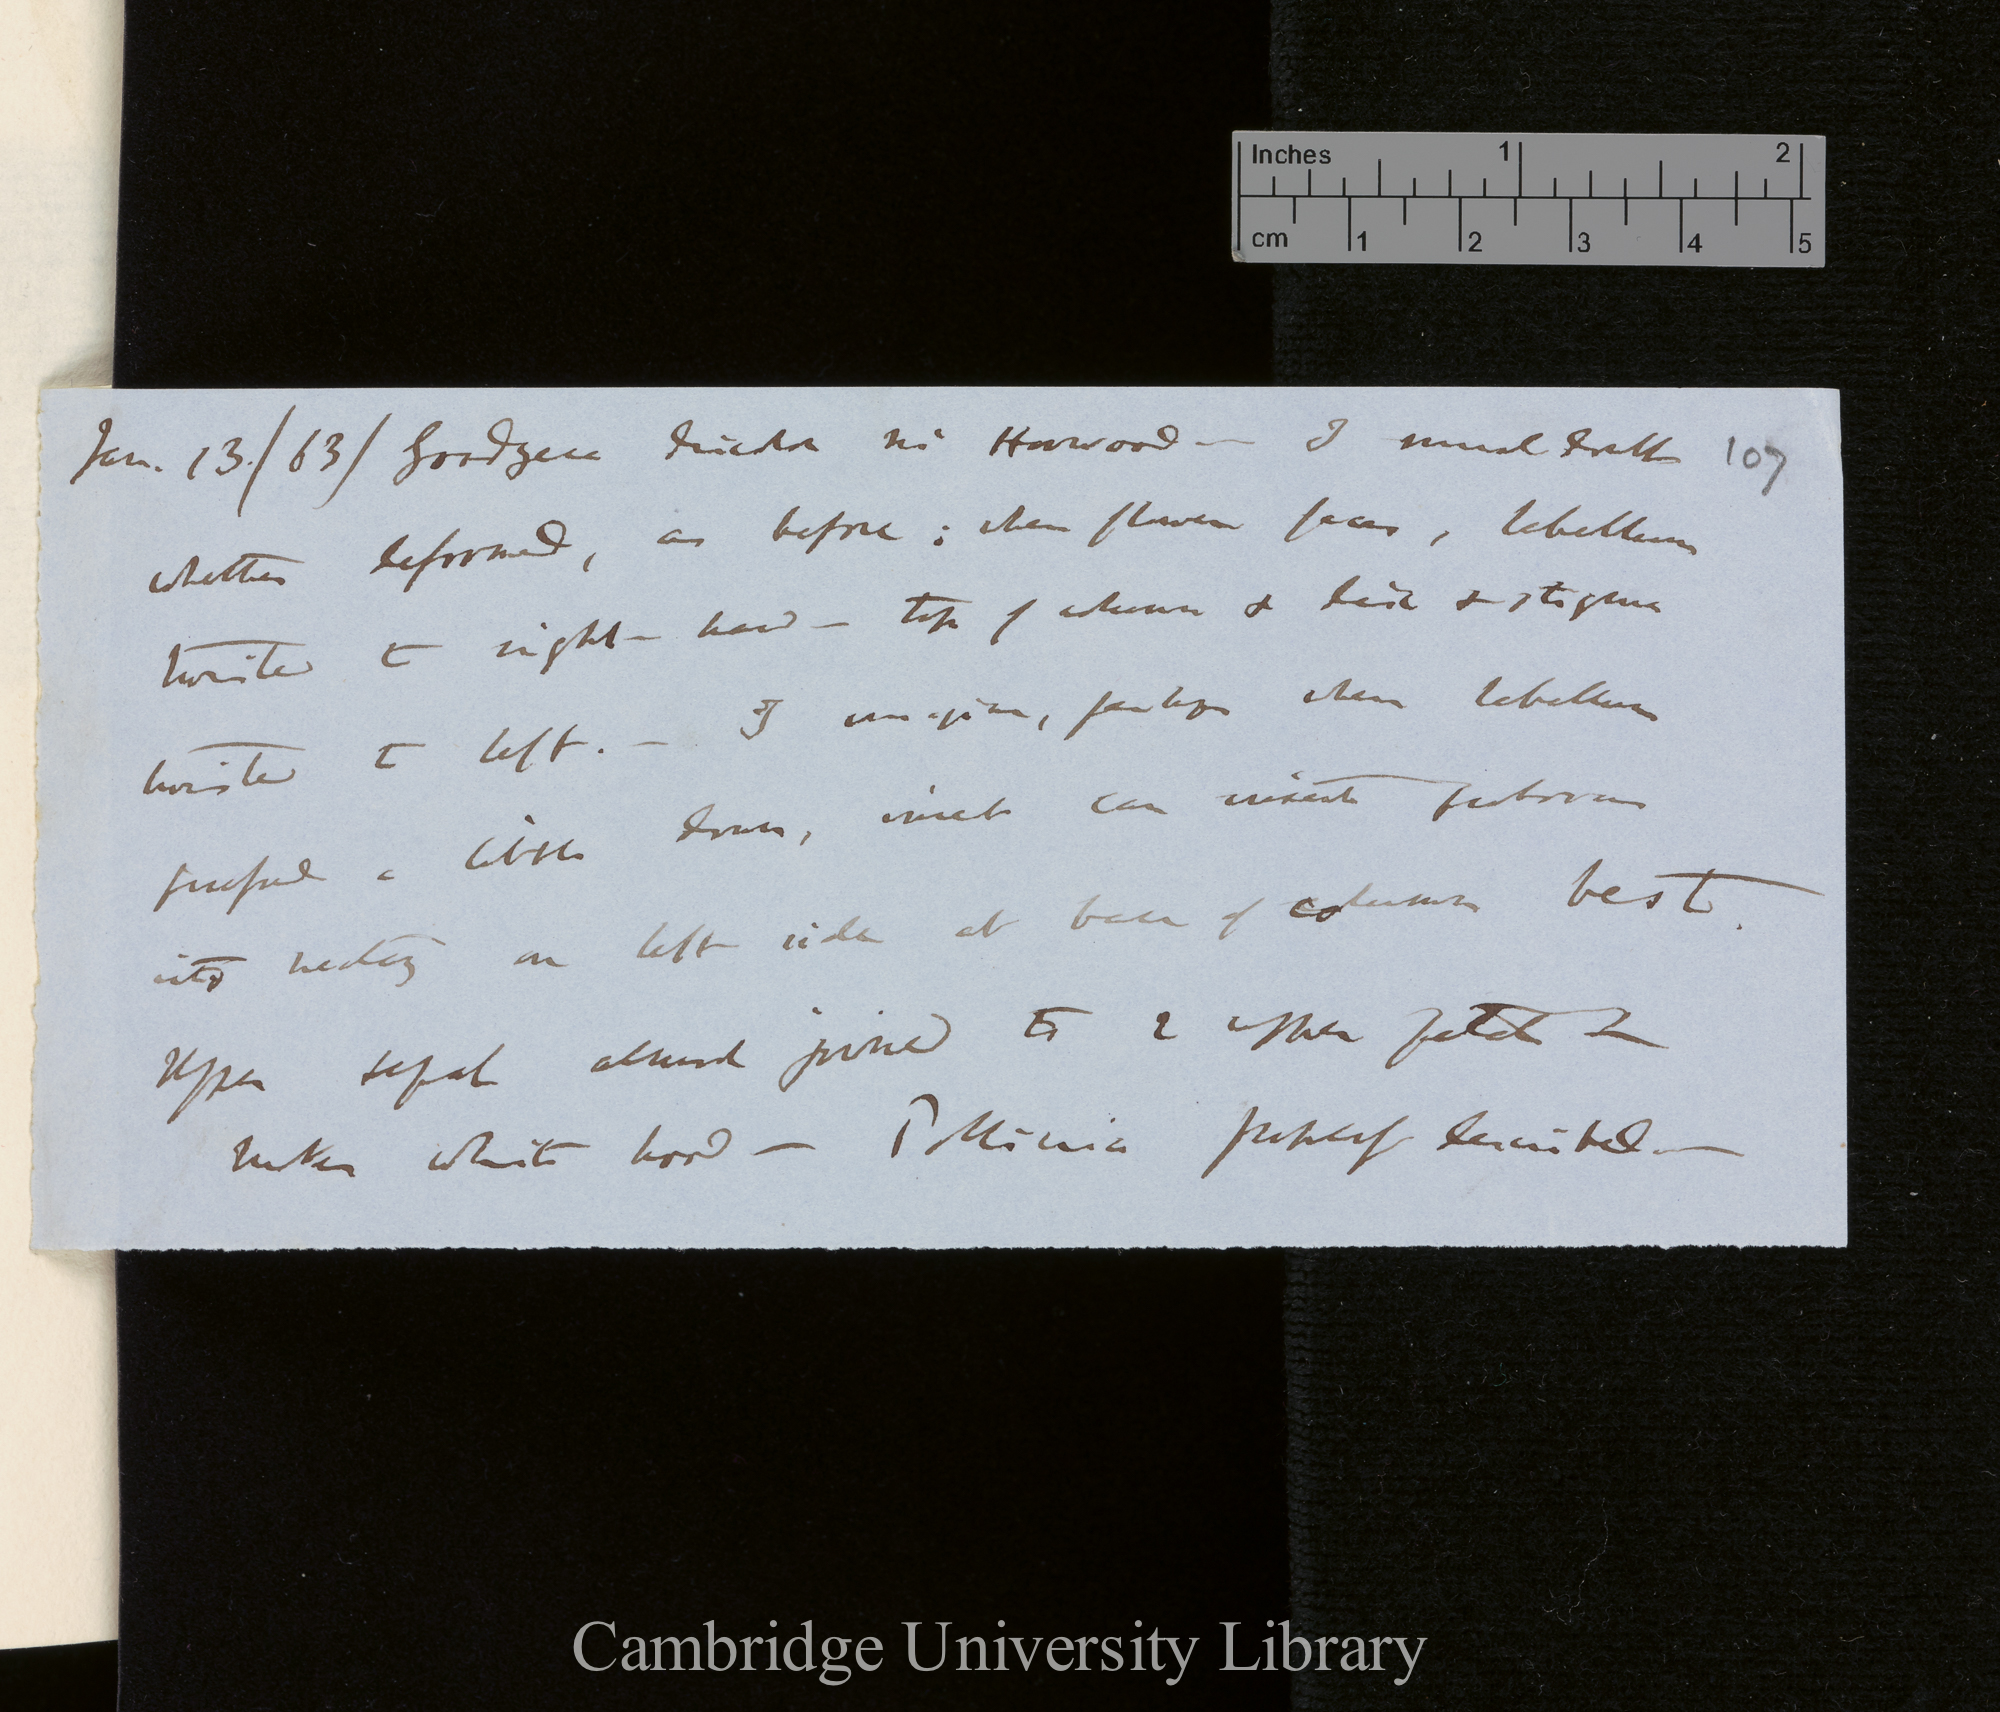 Inches 1 2
cm 1 2 3 4 5
Jan. 13./63/ Goodyera discolor Mr Horwood — I much doubt 107
whether deformed, as before; when flower faces, labellum
twisted to right-hand — top of column & disc & stigma
twisted to left. — I imagine, perhaps when labellum
pushed a little down, insect can insert proboscis
into nectary on left side at base of column best.
Upper sepal almost joined to 2 upper petals &
makes white hood — Pollinia properly described —
Cambridge University Library